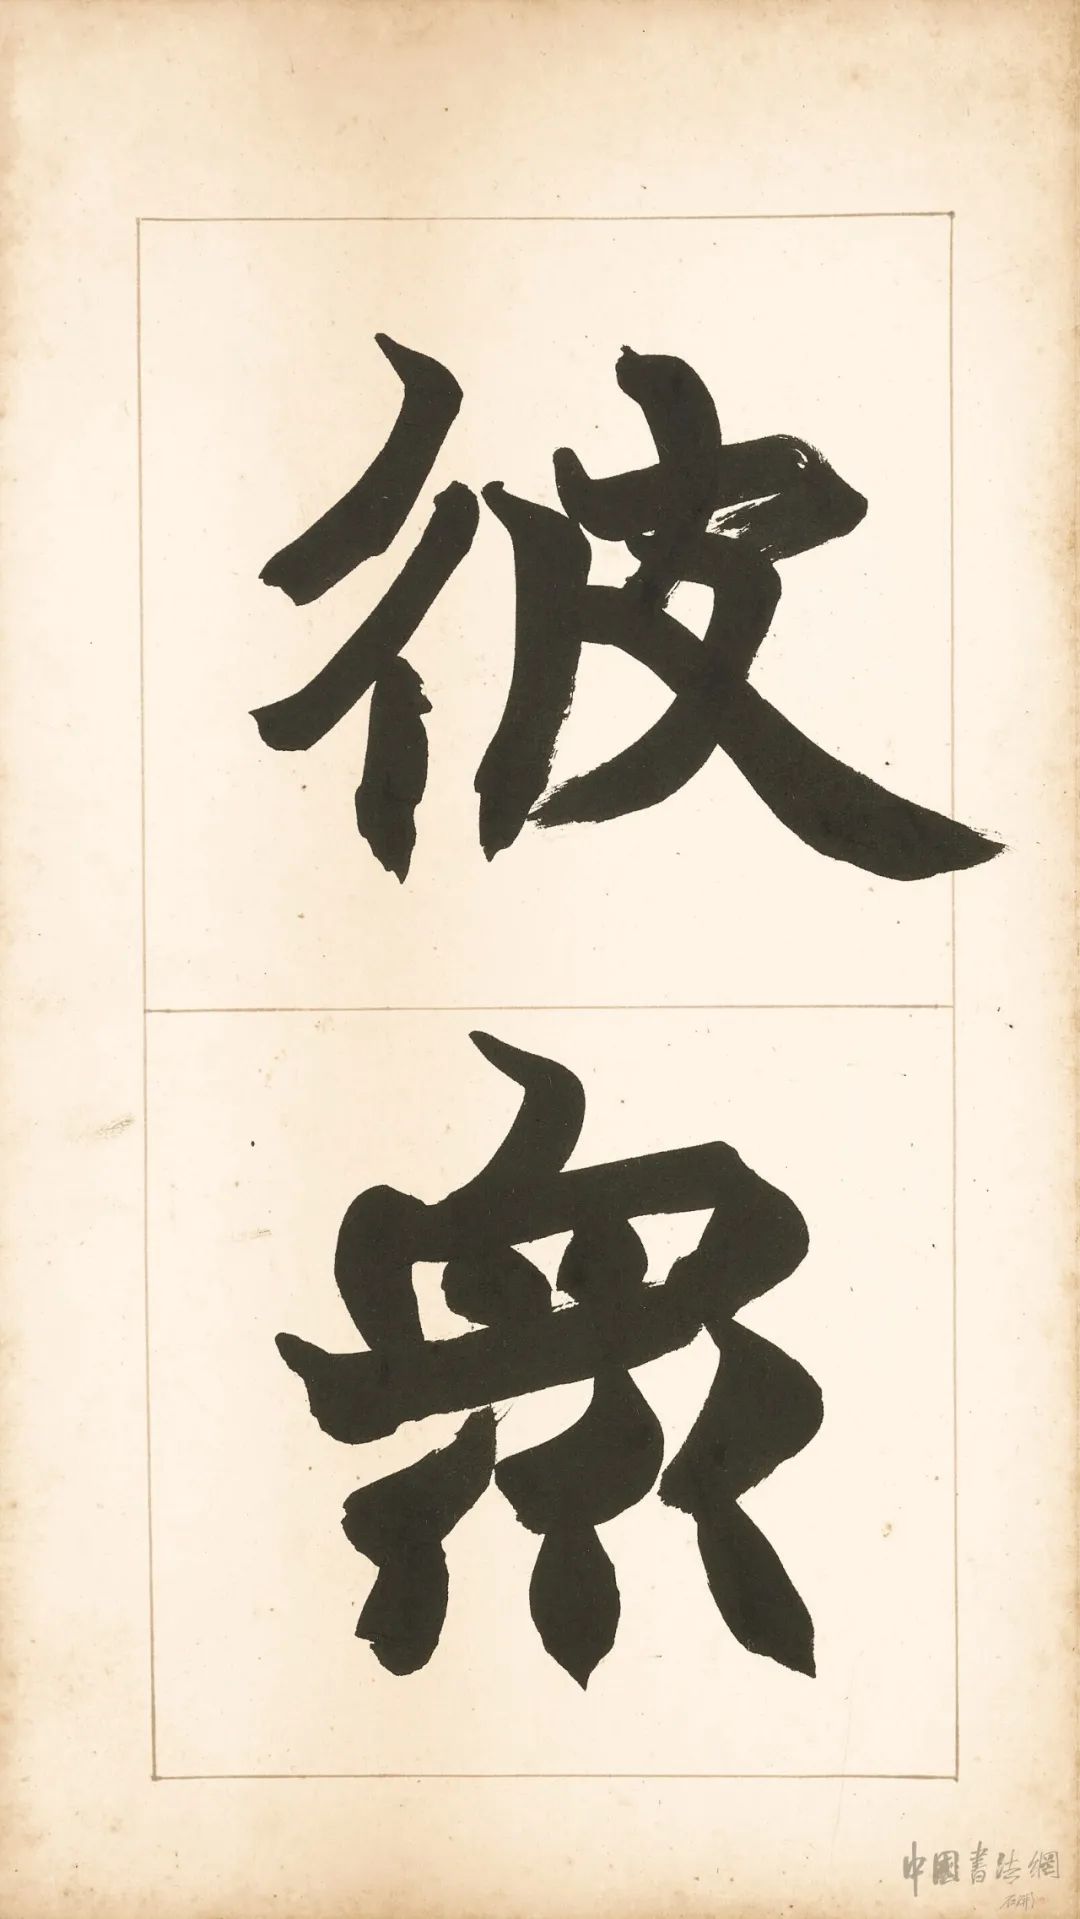 彼
眾
中國書法網